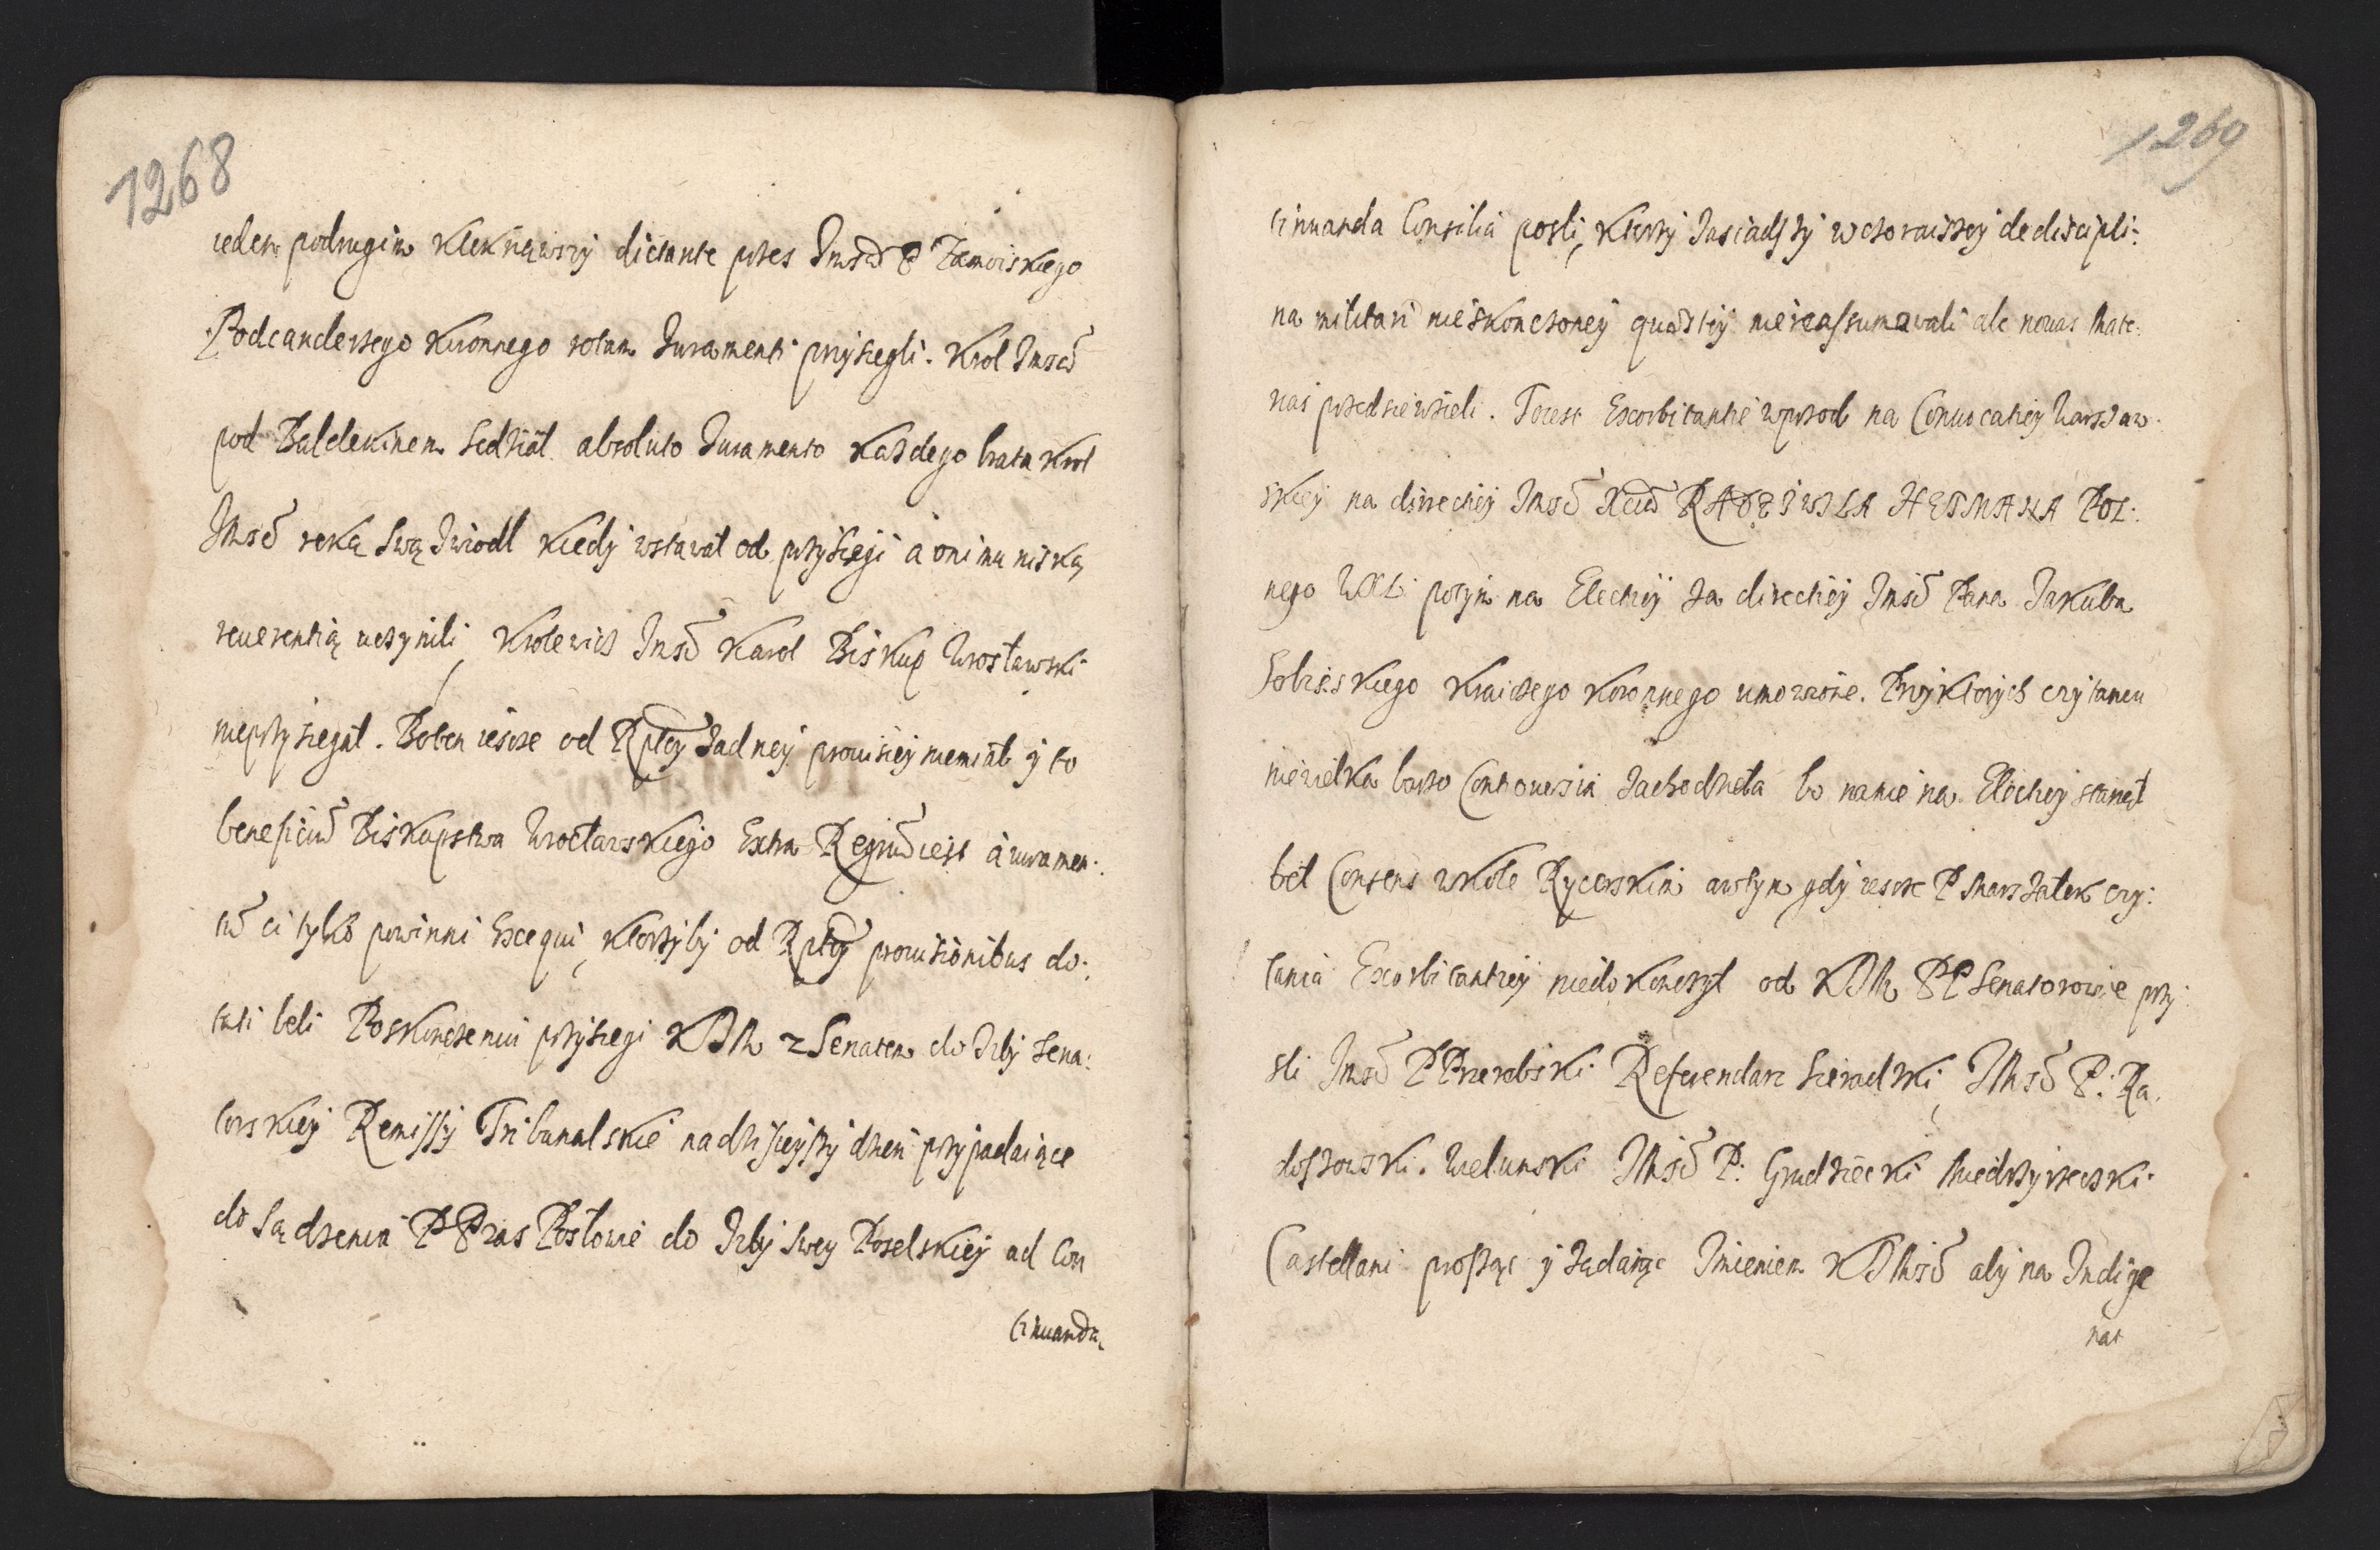 1268
ieden podrugim klęknąwszy dictante przes Jmśćᵃ P Zamoiskiego
Podcanclerzego Koronnego rotam Juramenti przysięgli. Krol Jmść
pod Baldekinem Siedział absoluto Juramento każdego brata Krol
Jmść ręką Swą Zwiodł kiedy wstawał od przysięgi a oni mu niską
reuerentią uczynili, Krolewic Jmść Karol Biskup Wrosławski
nieprzysięgał. Boben iescze od Rptey Zadney prouisiey niemiał y to
beneficiū Biskupstwa Wrocławskiego Extra Regnū iest a iuramen:
tū ci tylko powinni Exequi, ktorzyby od Rptey prouisionibus do:
tati beli Poskonczeniu przysięgi KJM z Senatem do Izby Sena:
torskiey Remissy Tribunalskie nadzisieyszy dzien przypadaiące
do Sądzenia PP zas Posłowie do Izby Swey Poselskiey ad Con
tinuanda
1269
tinuanda Consilia poszli, ktorzy Zasiadszy wczoraiszey de discipli:
na militari nieskonczoney quæstiey niereassumowali ale nouas Mate:
rias przedsiewzieli. To iest Exorbitantie wprzod na Conuocatiey Warszaw
skiey na directiey Jmść Xcia RADZIWILA HETMANA POL:
nego WXL potym na Electiey za directiey Jmść Pana Jakuba
Sobieskiego Kraiczego Koronnego umowione. Przyktorych czytaniu
niewielka barzo Controuersia Zachodzieła bo nanie na Electiey stanął
beł Consens wkole Rycerskim awtym gdy iescze P Marszałek czy:
tania Exorbitantiey niedokonczył od KJM PP Senatorowie przy
szli Jmść P Przerębski Referendarz Sieradzki, JMść P: Ra
doszowski. Wielunski JMść P: Grudziecki Miedzyrzecki
Castellani prosząc y Ządaiąc Jmieniem KJMści aby na Indige
nat